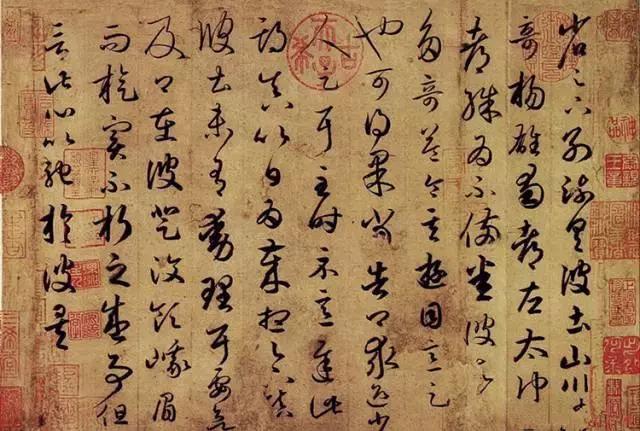 省足下別疏具彼土山川諸
奇楊雄蜀都左太沖
都殊為不備悉彼故
多奇益令其遊目意足
也可得果當告卿求迎少
人足耳至時示意遲此
期真以日為歲想足下鎮
彼土未有動理耳要欲
及卿在彼登汶領峨眉
而旋實不朽之盛事但
言此心以馳於彼矣